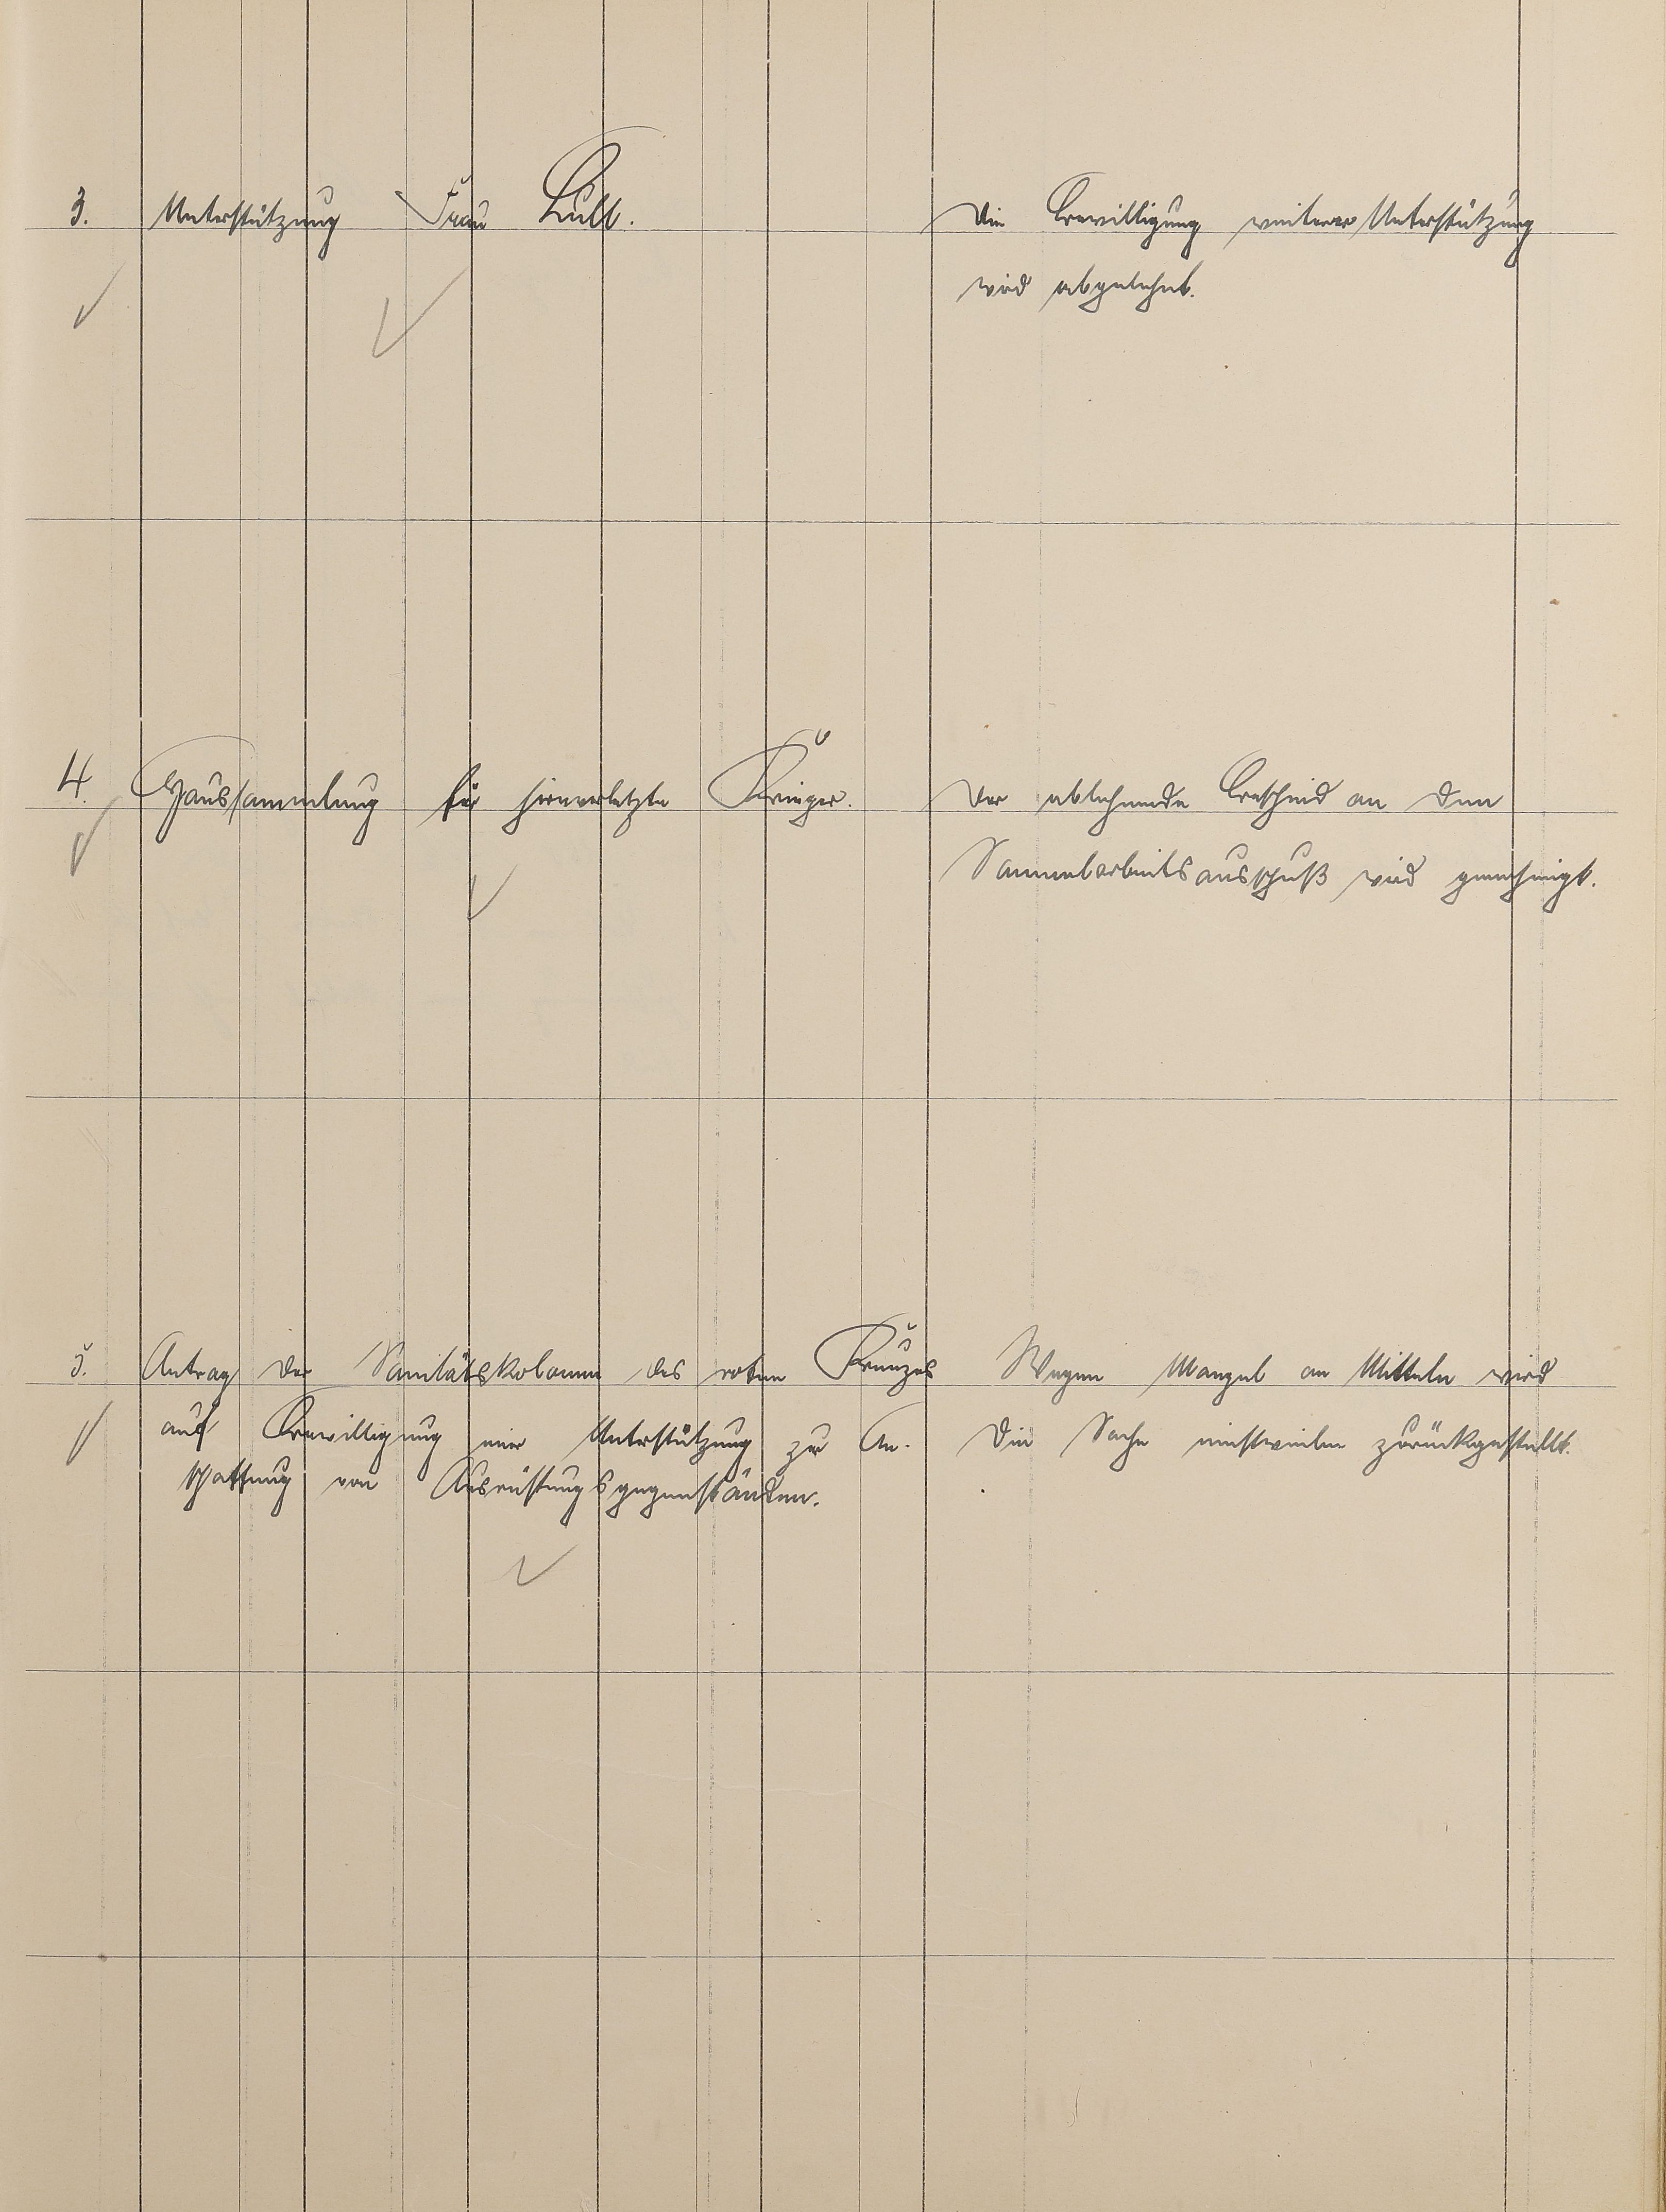 3. Unterstützung Frau Lull. Die Bewilligung weiterer Unterstützung
wird abgelehnt.
4. Haussammlung für hirnverletzte Krieger. Der ablehnende Bescheid an den
Sammelarbeitsausschuß wird genehmigt.
5. Antrag der Sanitätskolonne des roten Kreuzes Wegen Mangel an Mitteln wird
auf Bewilligung einer Unterstützung zur An- die Sache einstweilen zurückgestellt.
schaffung von Ausrüstungsgegenständen.